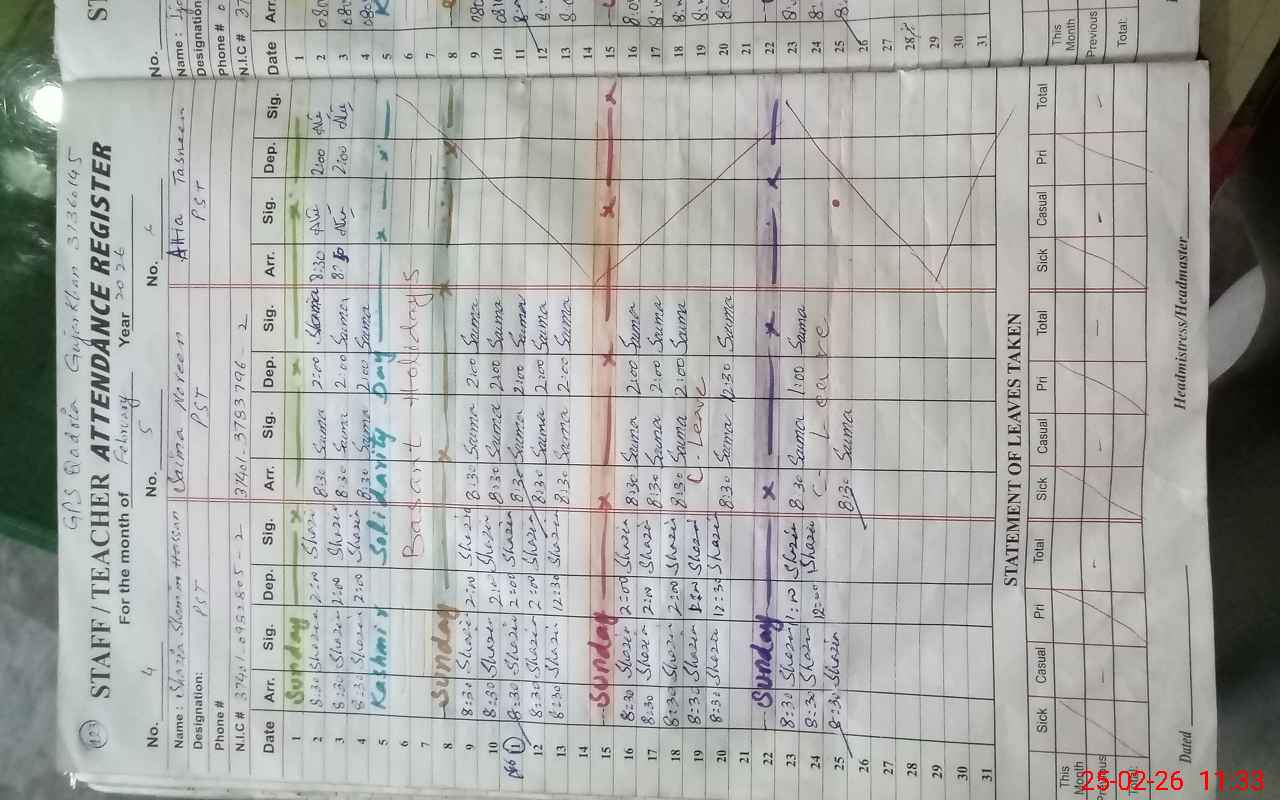 123
GPS Qadria Gujar Khan 37360145
STAFF / TEACHER ATTENDANCE REGISTER
For the month of February Year 2026
No. 4 No. 5 No.
Name: Shazia Shamim Hassan Saima Noreen Attia Tasneem
Designation: PST PST PST
Phone #
N.I.C # 37401-0982805-2 37401-3783796-2
Date Arr. Sig. Dep. Sig. Arr. Sig. Dep. Sig. Arr. Sig. Dep. Sig.
1 Sunday
2 8:30 Shazia 2:00 Shazia 8:30 Saima 2:00 Saima 8:30 2:00
3 8:30 Shazia 2:00 Shazia 8:30 Saima 2:00 Saima 2:00
4 8:30 Shazia 2:00 Shazia 8:30 Saima 2:00 Saima
5 Kashmir Solidarity Day
6 Basant Holidays
7
8 Sunday
9 8:30 Shazia 2:00 Shazia 8:30 Saima 2:00 Saima
10 8:30 Shazia 2:00 Shazia 8:30 Saima 2:00 Saima
11 8:30 Shazia 2:00 Shazia 8:30 Saima 2:00 Saima
12 8:30 Shazia 2:00 Shazia 8:30 Saima 2:00 Saima
13 8:30 Shazia 12:30 Shazia 8:30 Saima 2:00 Saima
14
15 Sunday
16 8:30 Shazia 2:00 Shazia 8:30 Saima 2:00 Saima
17 8:30 Shazia 2:00 Shazia 8:30 Saima 2:00 Saima
18 8:30 Shazia 2:00 Shazia 8:30 Saima 2:00 Saima
19 8:30 Shazia Shazia C. Leave
20 8:30 Shazia 12:30 Shazia 8:30 Saima 12:30 Saima
21
22 Sunday
23 8:30 Shazia 1:00 Shazia 8:30 Saima 1:00 Saima
24 8:30 Shazia 12:00 Shazia C- Leave
25 8:30 Shazia 8:30 Saima
26
27
28
29
30
31
STATEMENT OF LEAVES TAKEN
Sick Casual Pri Total Sick Casual Pri Total Sick Casual Pri Total
This Month
Previous
Total:
Dated Headmistress/Headmaster
No.
Name:
Designation
Phone #
N.I.C #
Date Arr.
1
2
3
4
5
6
7
8
9
10
11
12
13
14
15
16
17
18
19
20
21
22
23
24
25
26
27
28
29
30
31
This Month
Previous
Total:
25-02-26 11:33